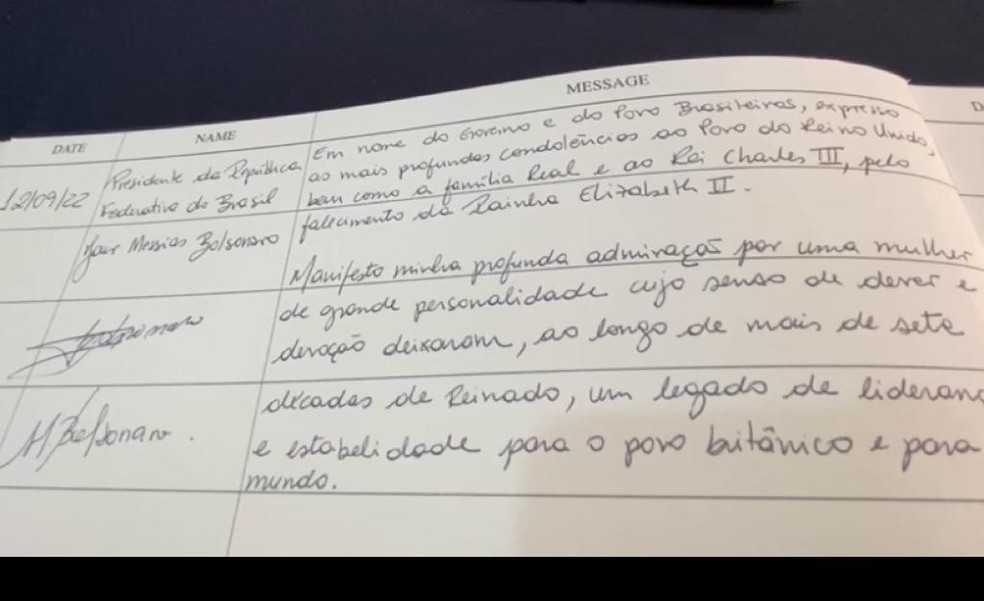 MESSAGE
DATE
NAME
D
12/09/22
Presidente da República
Federativa do Brasil
Jair Messias Bolsonaro
Em nome do Governo e do Povo Brasileiros, expresso
as mais profundas condolências ao Povo do Reino Unido,
bem como a família Real e ao Rei Charles III, pelo
falecimento da Rainha Elizabeth II.
Manifesto minha profunda admiração por uma mulher
de grande personalidade cujo senso de dever e
devoção deixaram, ao longo de mais de sete
décadas de Reinado, um legado de lideranç
e estabelidade para o povo britânico e para
mundo.
M. Bolsonaro.